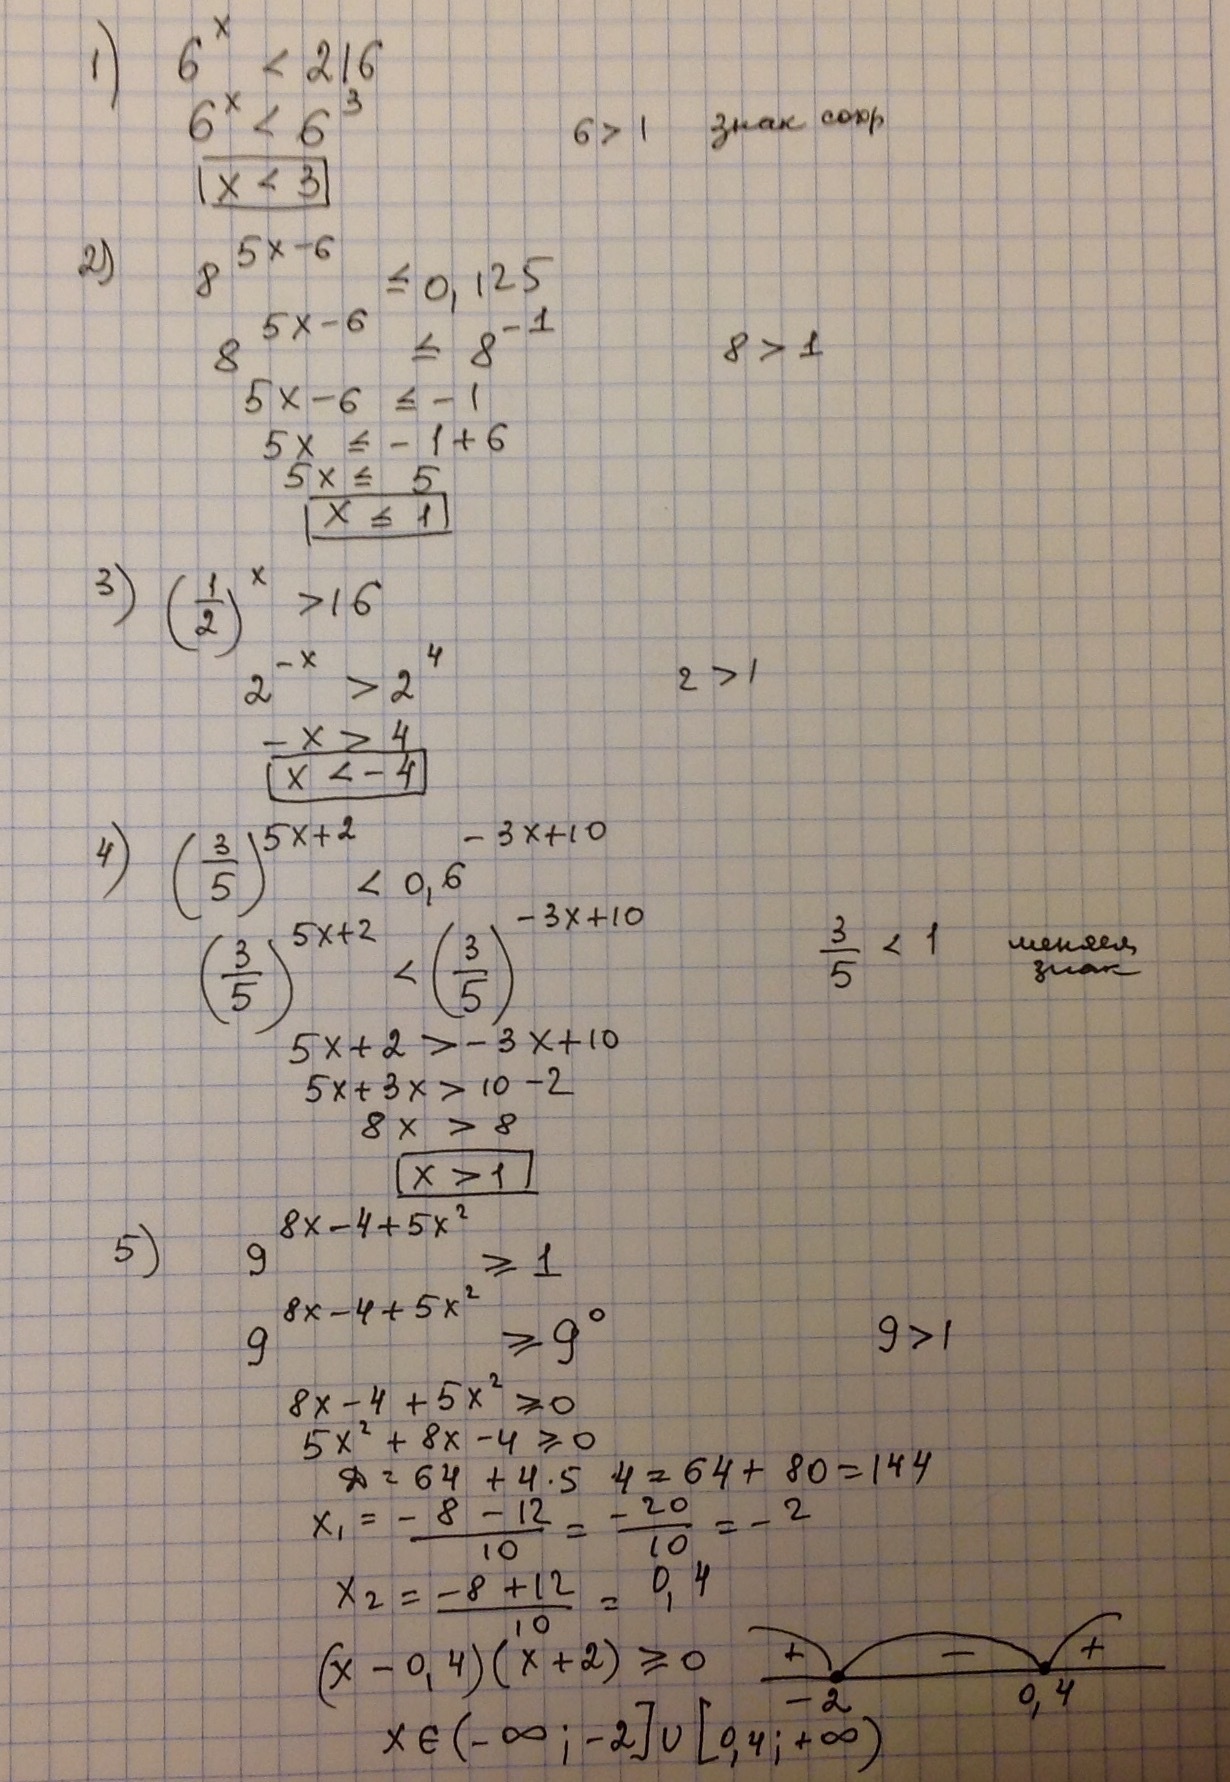 1) 6^x < 216
6^x < 6^3 6 > 1 знак сохр
x < 3
2) 8^(5x-6) ≤ 0,125
8^(5x-6) ≤ 8^(-1) 8 > 1
5x-6 ≤ -1
5x ≤ -1+6
5x ≤ 5
x ≤ 1
3) (1/2)^x > 16
2^(-x) > 2^4 2 > 1
-x > 4
x < -4
4) (3/5)^(5x+2) < 0,6^(-3x+10)
(3/5)^(5x+2) < (3/5)^(-3x+10) 3/5 < 1 меняем знак
5x+2 > -3x+10
5x+3x > 10-2
8x > 8
x > 1
5) 9^(8x-4+5x²) ≥ 1
9^(8x-4+5x²) ≥ 9^0 9 > 1
8x-4+5x² ≥ 0
5x²+8x-4 ≥ 0
D = 64 + 4·5 4 = 64 + 80 = 144
x₁ = (-8-12)/10 = -20/10 = -2
x₂ = (-8+12)/10 = 0,4
(x-0,4)(x+2) ≥ 0 + - +
-2 0,4
x∈(-∞;-2]∪[0,4;+∞)